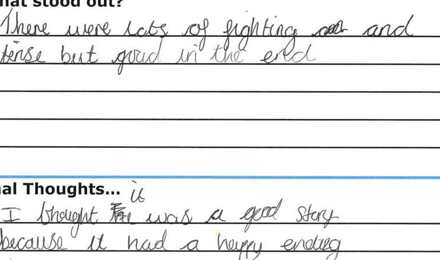 hat stood out?
There were lots of fighting and
tense but good in the end
al Thoughts... it
I thought was a good story
because it had a happy ending